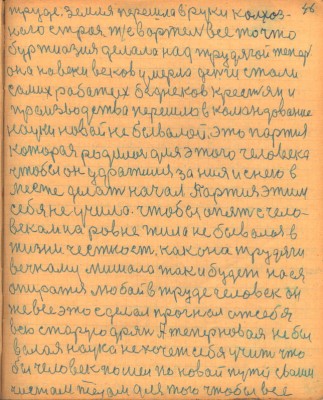 46
труде земля перешла в руки колхоз-
ного строя т/с в артел все то что
буржазия делала над трудягой тепер
она вовеки веков умерла дети стали
самих рабочих бедняков крестян и
производства перешло в командование
науки новай не бывалой, это партия
которая родилася для этого человека
чтобы он ударился за ния и с нею в
месте делат начал Партия этим
себя не учила. чтобы опят с чело-
веком на ровне жила не бывалоя в
жизни честност, как она трудяги
вечному мишала так и будет на ся
опиратя любой в труде человек он
же все это сделал прогнал от себя
всю старую дрян А теперь новая не бы
валая наука не хочет себя учит что
бы человек пошел по новой пути своим
чистам телам для того чтобы все